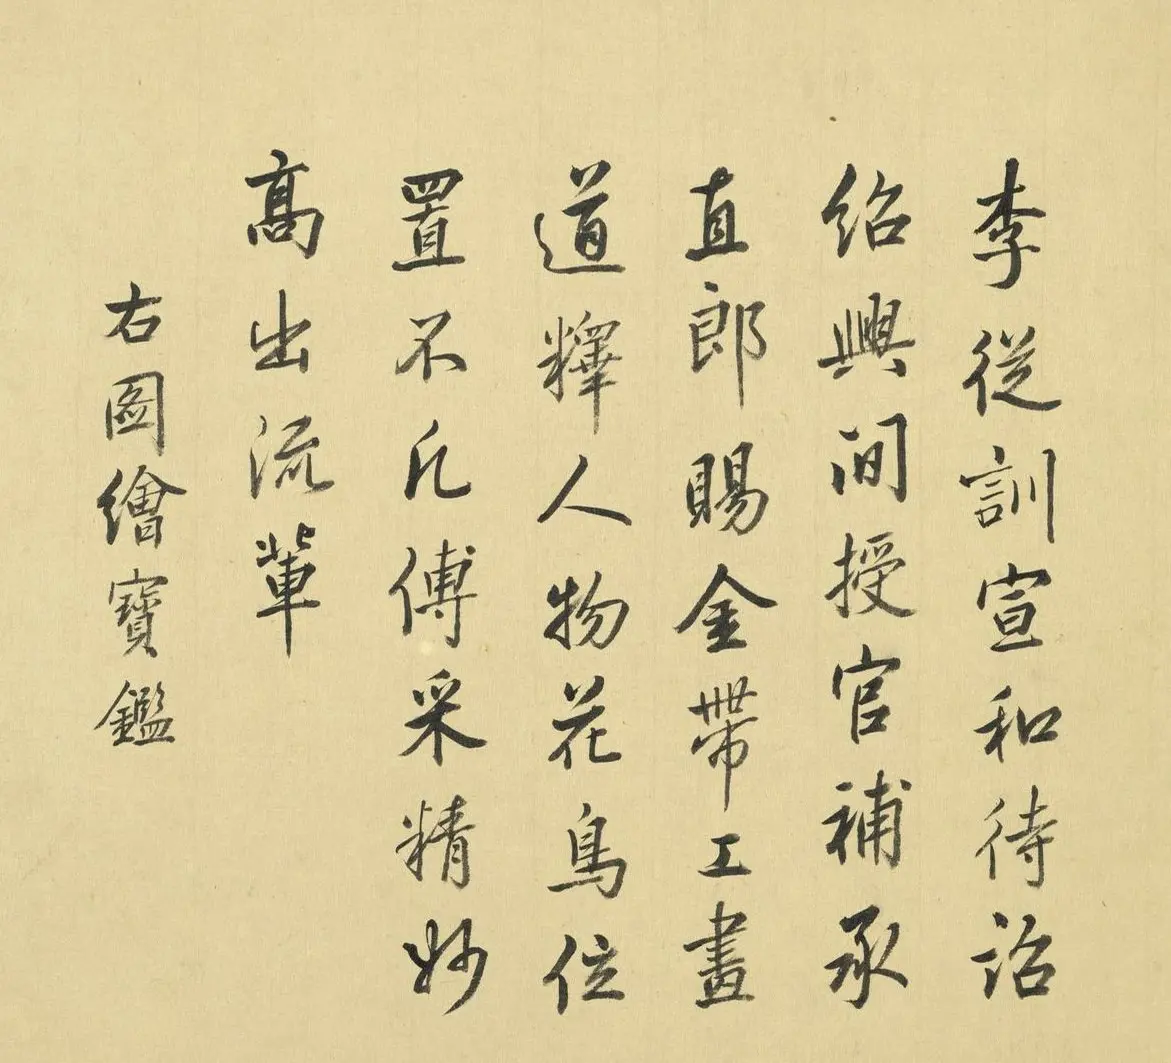 李從訓宣和待詔
紹興間授官補承
直郎賜金帶工畫
道釋人物花鳥位
置不凡傅采精妙
高出流輩
右圖繪寶鑑